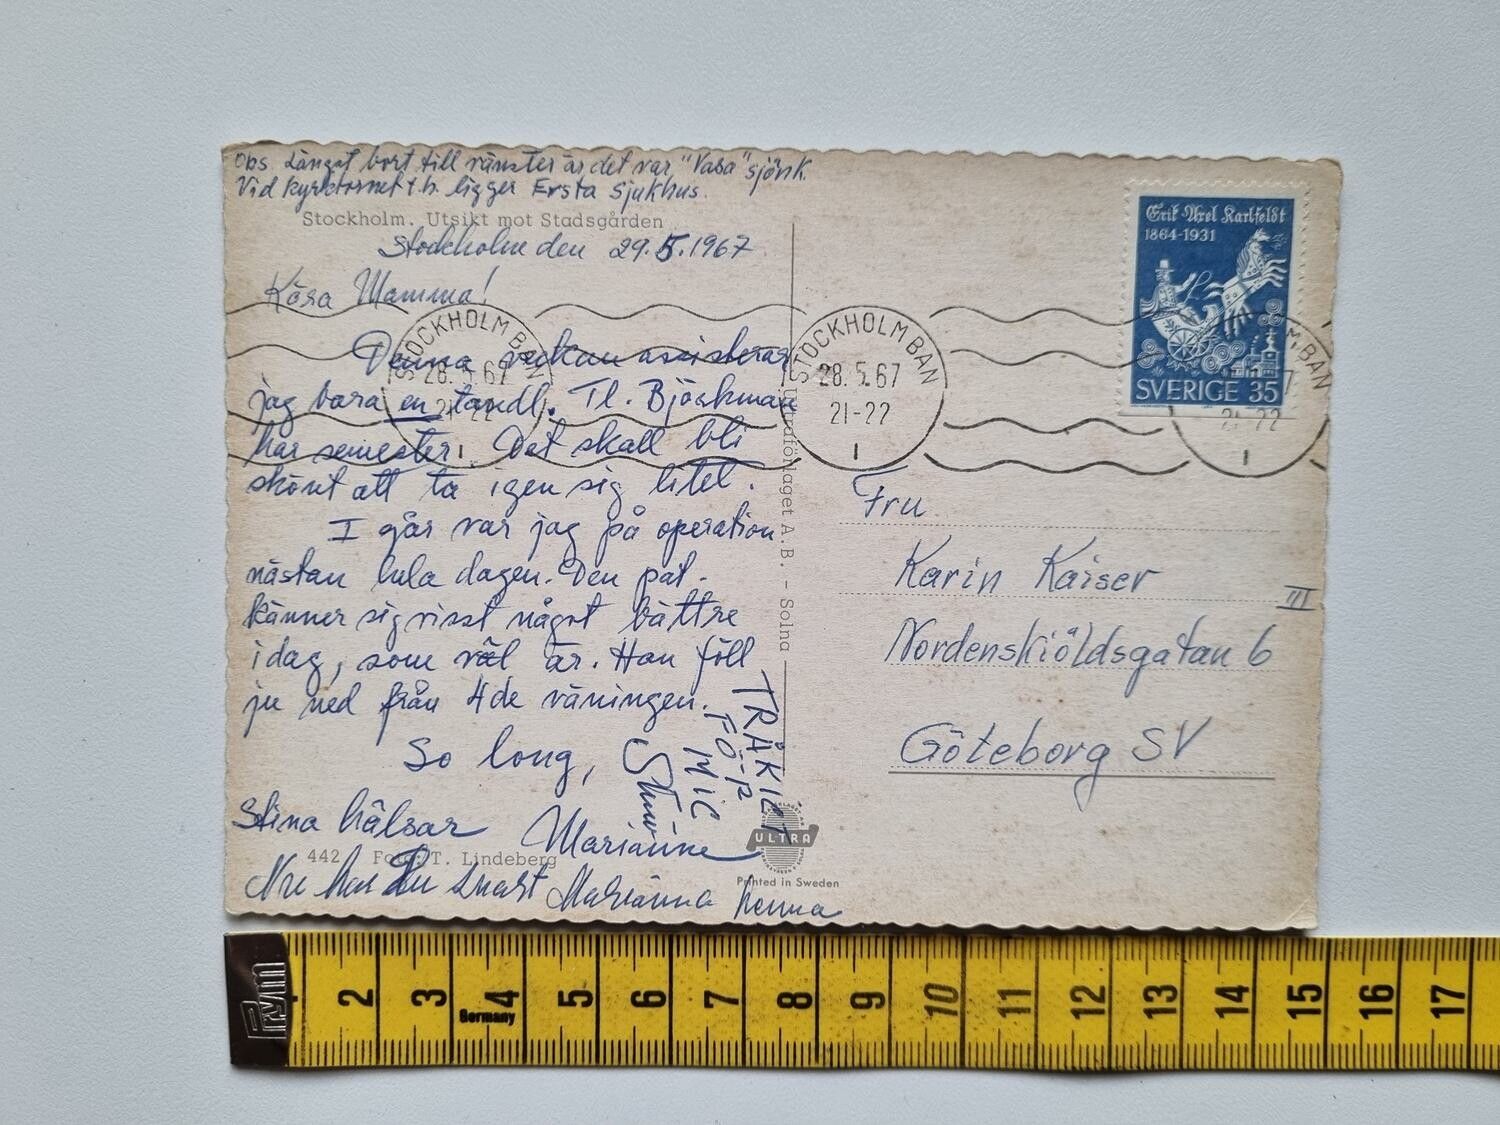 Obs. Längst bort till vänster är det var "Vasa" sjönk.
Vid kyrktornet t.h. ligger Ersta Sjukhus.
Stockholm. Utsikt mot Stadsgården
Stockholm den 29.5.1967
Kära Mamma!
Denna veckan assisterar
jag bara en tandl. Tl. Björkman
har semester. Det skall bli
skönt att ta igen sig litet.
I går var jag på operation
nästan hela dagen. Den pat.
känner sig visst något bättre
idag, som väl är. Han föll
ju ned från 4de våningen.
So long,
Marianne
Stina hälsar
TRÅKIGT
FÖR
MIG
442 Foto: T. Lindeberg
Nu har Du snart Marianne hemma
Ultraförlaget A.B. - Solna
ULTRA
Printed in Sweden
STOCKHOLM BAN
28.5.67
21-22
1
STOCKHOLM BAN
28.5.67
21-22
1
M. BAN
7
21-22
1
Erik Axel Karlfeldt
1864-1931
SVERIGE 35
Fru
Karin Kaiser
III
Nordenskiöldsgatan 6
Göteborg SV
Prym
2 3 4 5 6 7 8 9 10 11 12 13 14 15 16 17
Germany